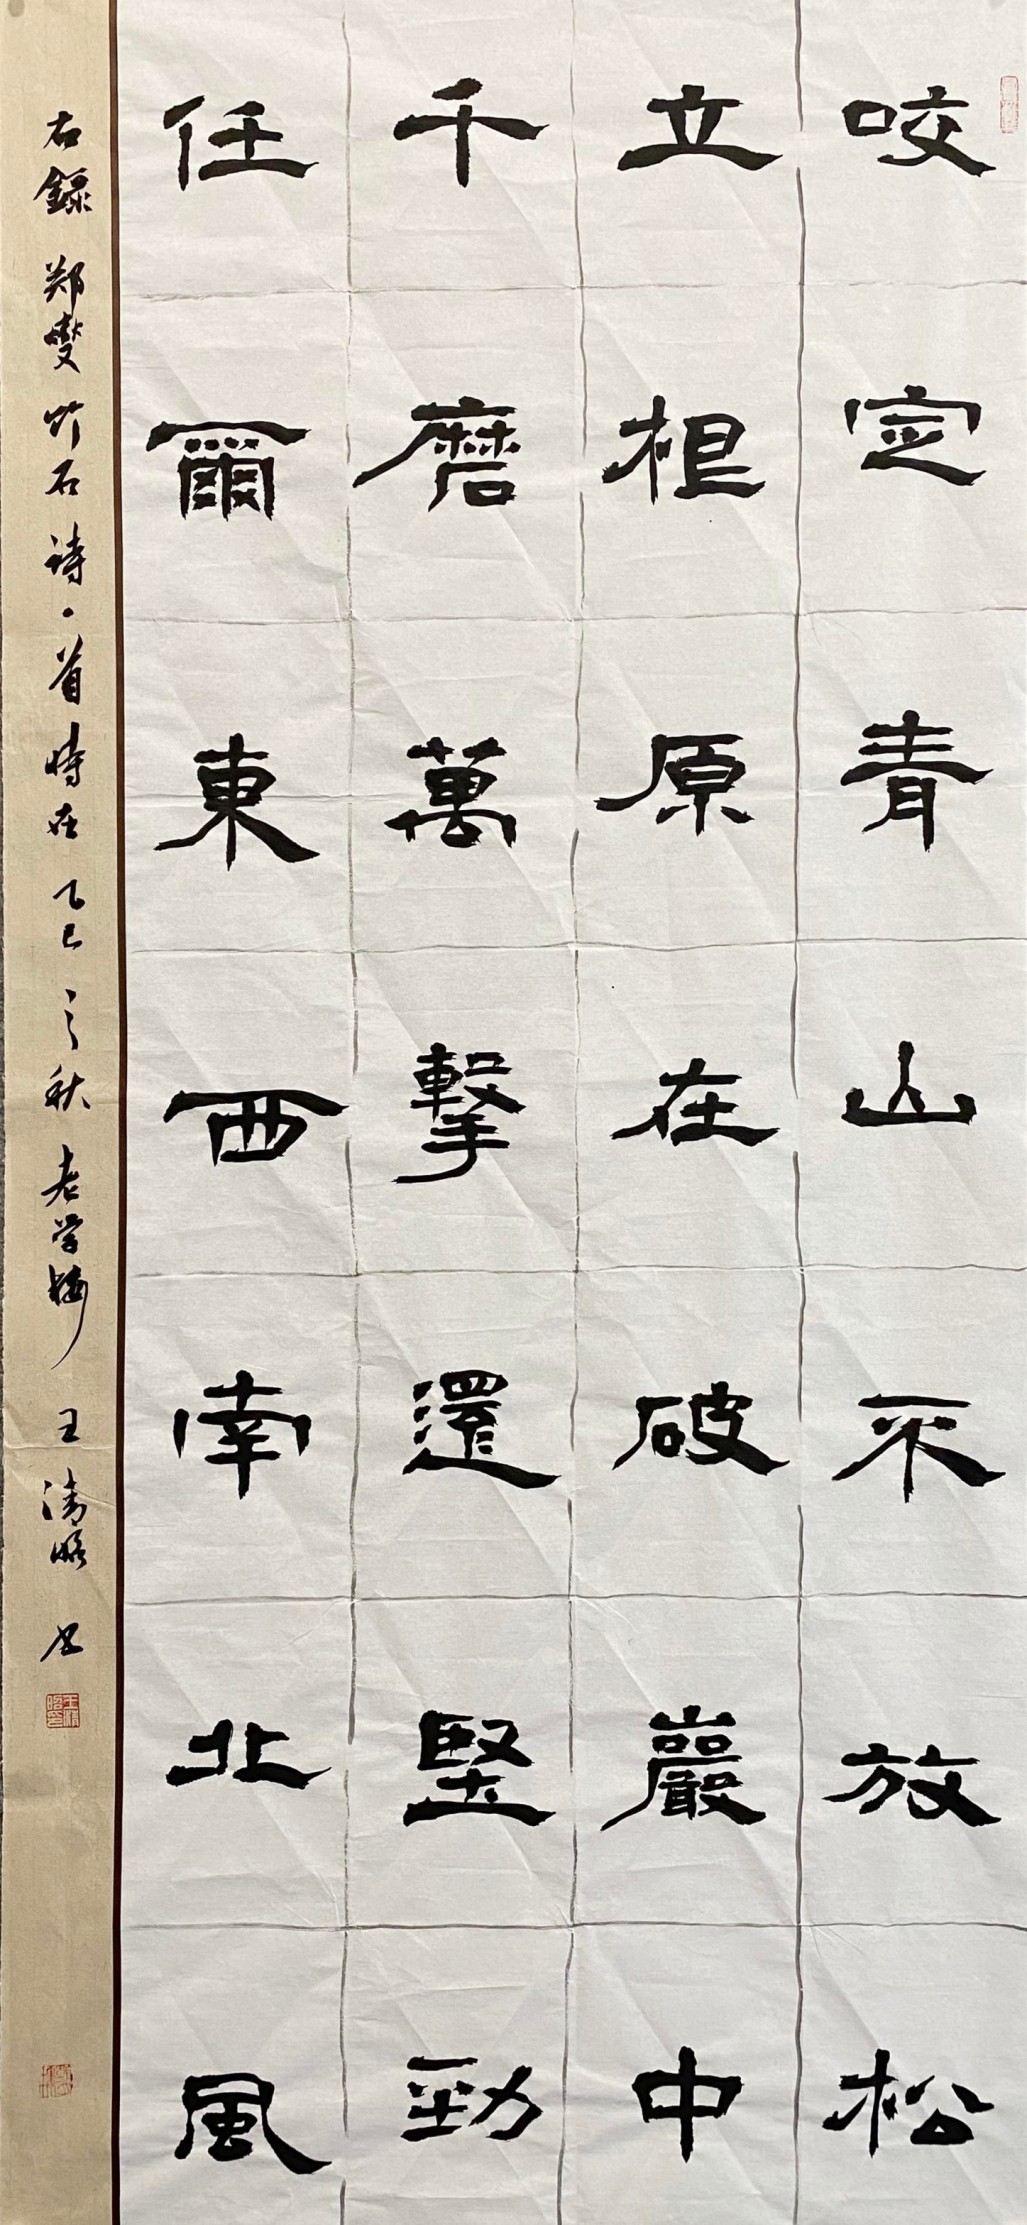 咬定青山不放松
立根原在破巖中
千磨萬擊還堅勁
任爾東西南北風
右錄郑燮竹石詩一首時在乙巳之秋老学梅王清照书